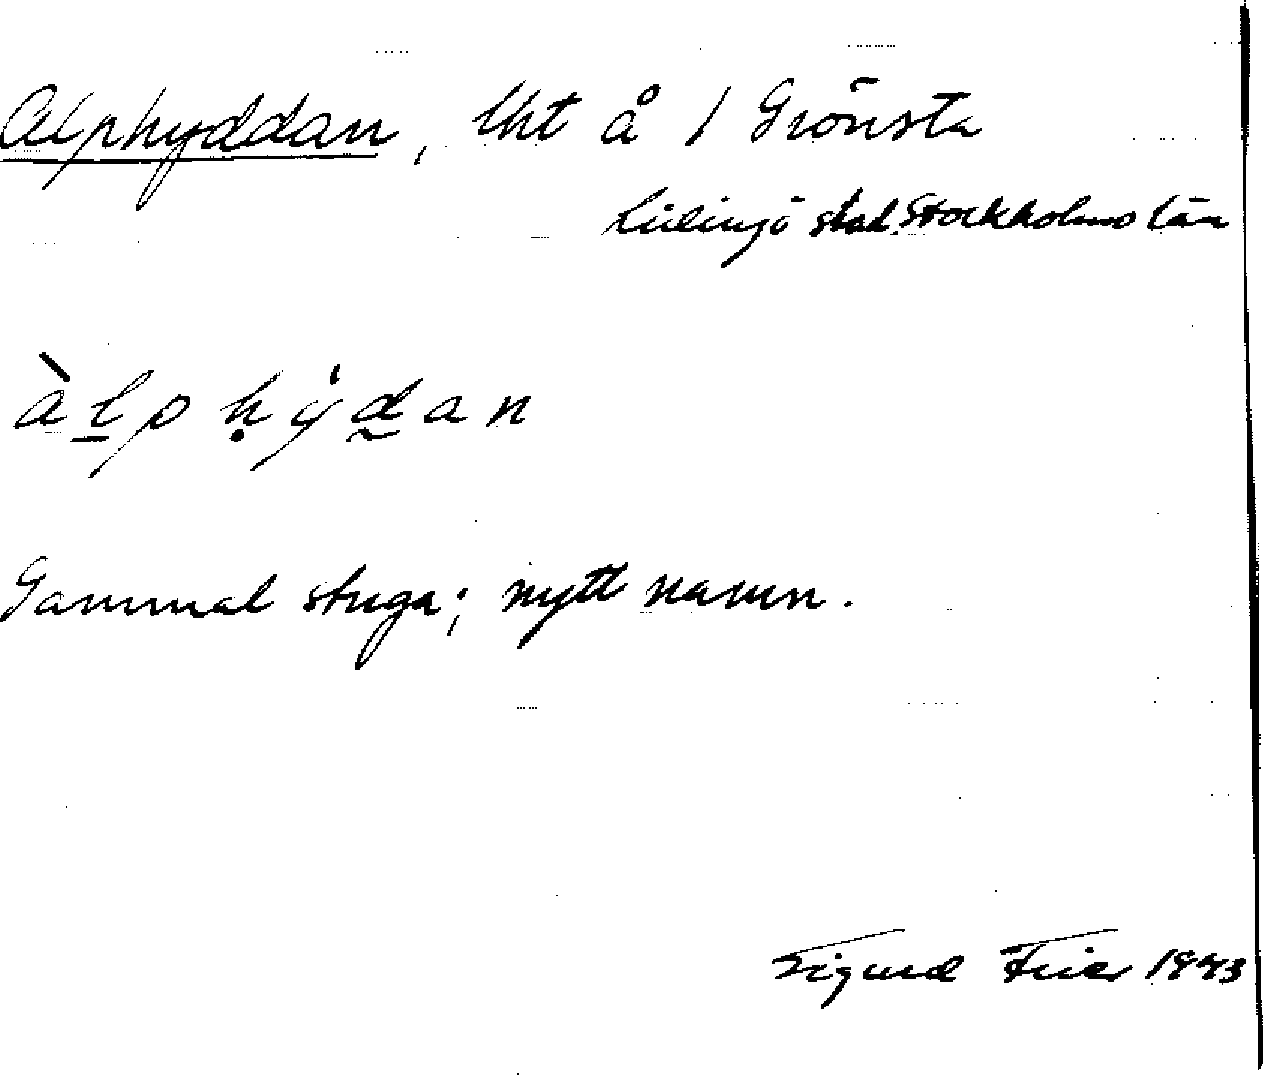 Alphyddan, lht å 1 Grönsta
Lidingö stad Stockholms län
àlphýdan
Gammal stuga; nytt namn.
Sigurd Fries 1943